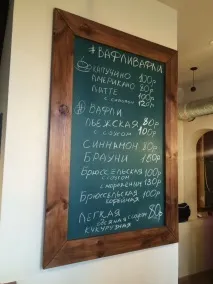 #ВАФЛИВАФЛИ
КАПУЧИНО 100р
АМЕРИКАНО 80р
ЛАТТЕ 100р
с сиропом 120р
ВАФЛИ
ЛЬЕЖСКАЯ 80р
с соусом 100р
СИННАМОН 80р
БРАУНИ 150р
Брюссельская 100р
с соусом
с мороженым 130р
Брюссельская 100р
ЛЕГКАЯ 80р
овсяная
КУКУРУЗНАЯ